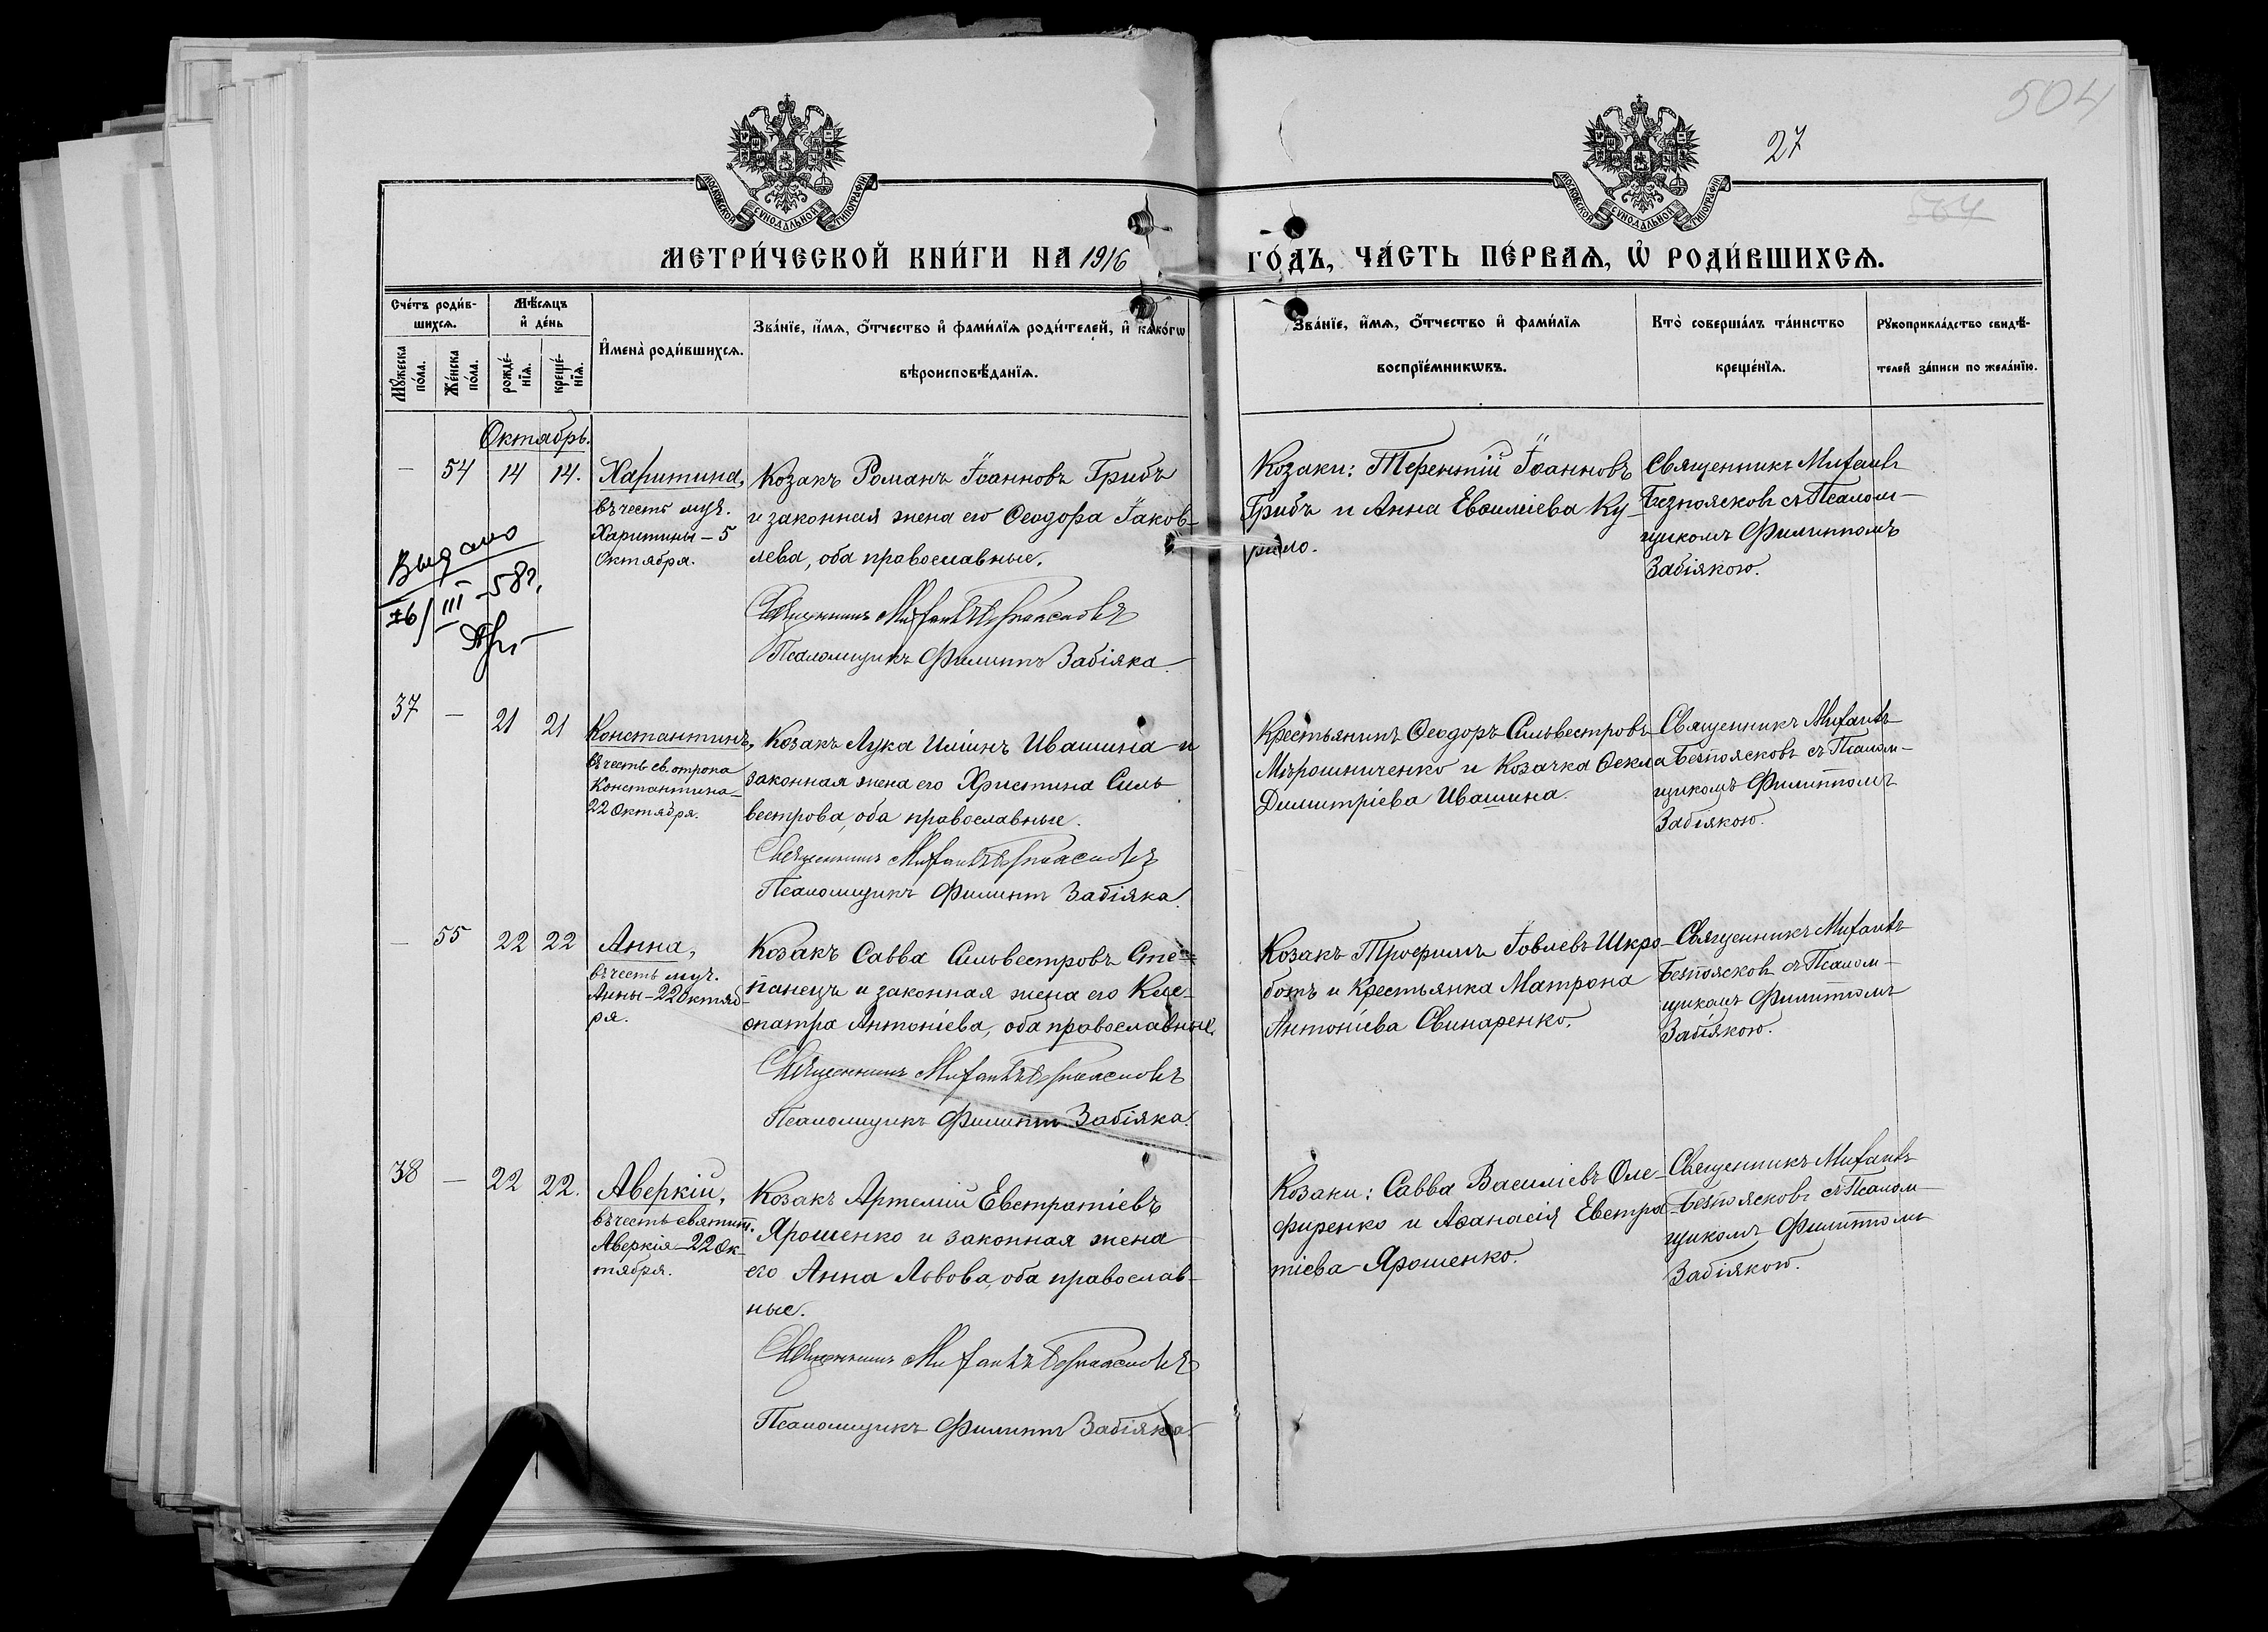 504
27
504
МОСКОВСКОЙ СУНОДАЛЬНОЙ ТИПОГРАФІИ
МОСКОВСКОЙ СУНОДАЛЬНОЙ ТИПОГРАФІИ
МЕТРИ́ЧЕСКОЙ КНИ́ГИ НА 1916
ГО́ДЪ, ЧА́СТЬ ПЕ́РВАѦ, Ѡ҆ РОДИ́ВШИХСѦ.
Сче́тъ роди́в-
шихсѧ.
Мѹ́жеска
по́ла.
Же́нска
по́ла.
Мѣ́сѧцъ
и҆ де́нь
рожде́-
нїѧ.
креще́-
нїѧ.
И҆мена̀ роди́вшихсѧ.
Зва́нїе, и҆́мѧ, ѻ҆́тчество и҆ фами́лїѧ роди́телей, и҆ како́гѡ
вѣроисповѣ́данїѧ.
Зва́нїе, и҆́мѧ, ѻ҆́тчество и҆ фами́лїѧ
воспрїе́мникѡвъ.
Кто̀ соверша́лъ та́инство
креще́нїѧ.
Рꙋкоприкла́дство свидѣ́-
телей за́писи по жела́нїю.
Октябрь.
— 54 14 14.
Харитина,
въ честь муч.
Харитины – 5
Октября.
Козакъ Романъ Іоанновъ Грибъ
и законная жена его Ѳеодора Іаков-
лева, оба православные.
Священникъ Митрофанъ Безпоясковъ
Псаломщикъ Филиппъ Забіяка.
Козаки: Терентій Іоанновъ
Грибъ и Анна Евфиміева Ку-
рило.
Священникъ Мит[рофа]нъ
Безпоясковъ съ Псалом-
щикомъ Филиппомъ
Забіякою.
Выдано
16/III-58г.
37 — 21 21
Константинъ,
въ честь св. отрока
Константина –
22 Октября.
Козакъ Лука Иліинъ Ивашина и
законная жена его Христина Силь
вестрова, оба православные.
Священникъ Митрофанъ Безпоясковъ
Псаломщикъ Филиппъ Забіяка.
Крестьянинъ Ѳеодоръ Сильвестровъ
Мѣрошниченко и Козачка Ѳекла
Димитріева Ивашина.
Священникъ
Безпоясковъ съ Псалом-
щикомъ Филиппомъ
Забіякою.
— 55 22 22
Анна,
въ честь муч.
Анны – 22 Октяб-
ря.
Козакъ Савва Сильвестровъ Сте-
панецъ и законная жена его Кле-
опатра Антоніева, оба православные.
Священникъ Митрофанъ Безпоясковъ
Псаломщикъ Филиппъ Забіяка.
Козакъ Трофимъ Іовлевъ Шкро-
ботъ и Крестьянка Матрона
Антоніева Свинаренко.
Священникъ
Безпоясковъ съ Псалом-
щикомъ Филиппомъ
Забіякою.
38 — 22 22.
Аверкій,
въ честь святит.
Аверкія – 22 Ок-
тября.
Козакъ Артемій Евстратіевъ
Ярошенко и законная жена
его Анна Львова, оба православ-
ные.
Священникъ Митрофанъ Безпоясковъ
Псаломщикъ Филиппъ Забіяка
Козаки: Савва Василіевъ Оле-
фиренко и Аѳанасія Евстра-
тіева Ярошенко.
Священникъ
Безпоясковъ съ Псалом-
щикомъ Филиппомъ
Забіякою.